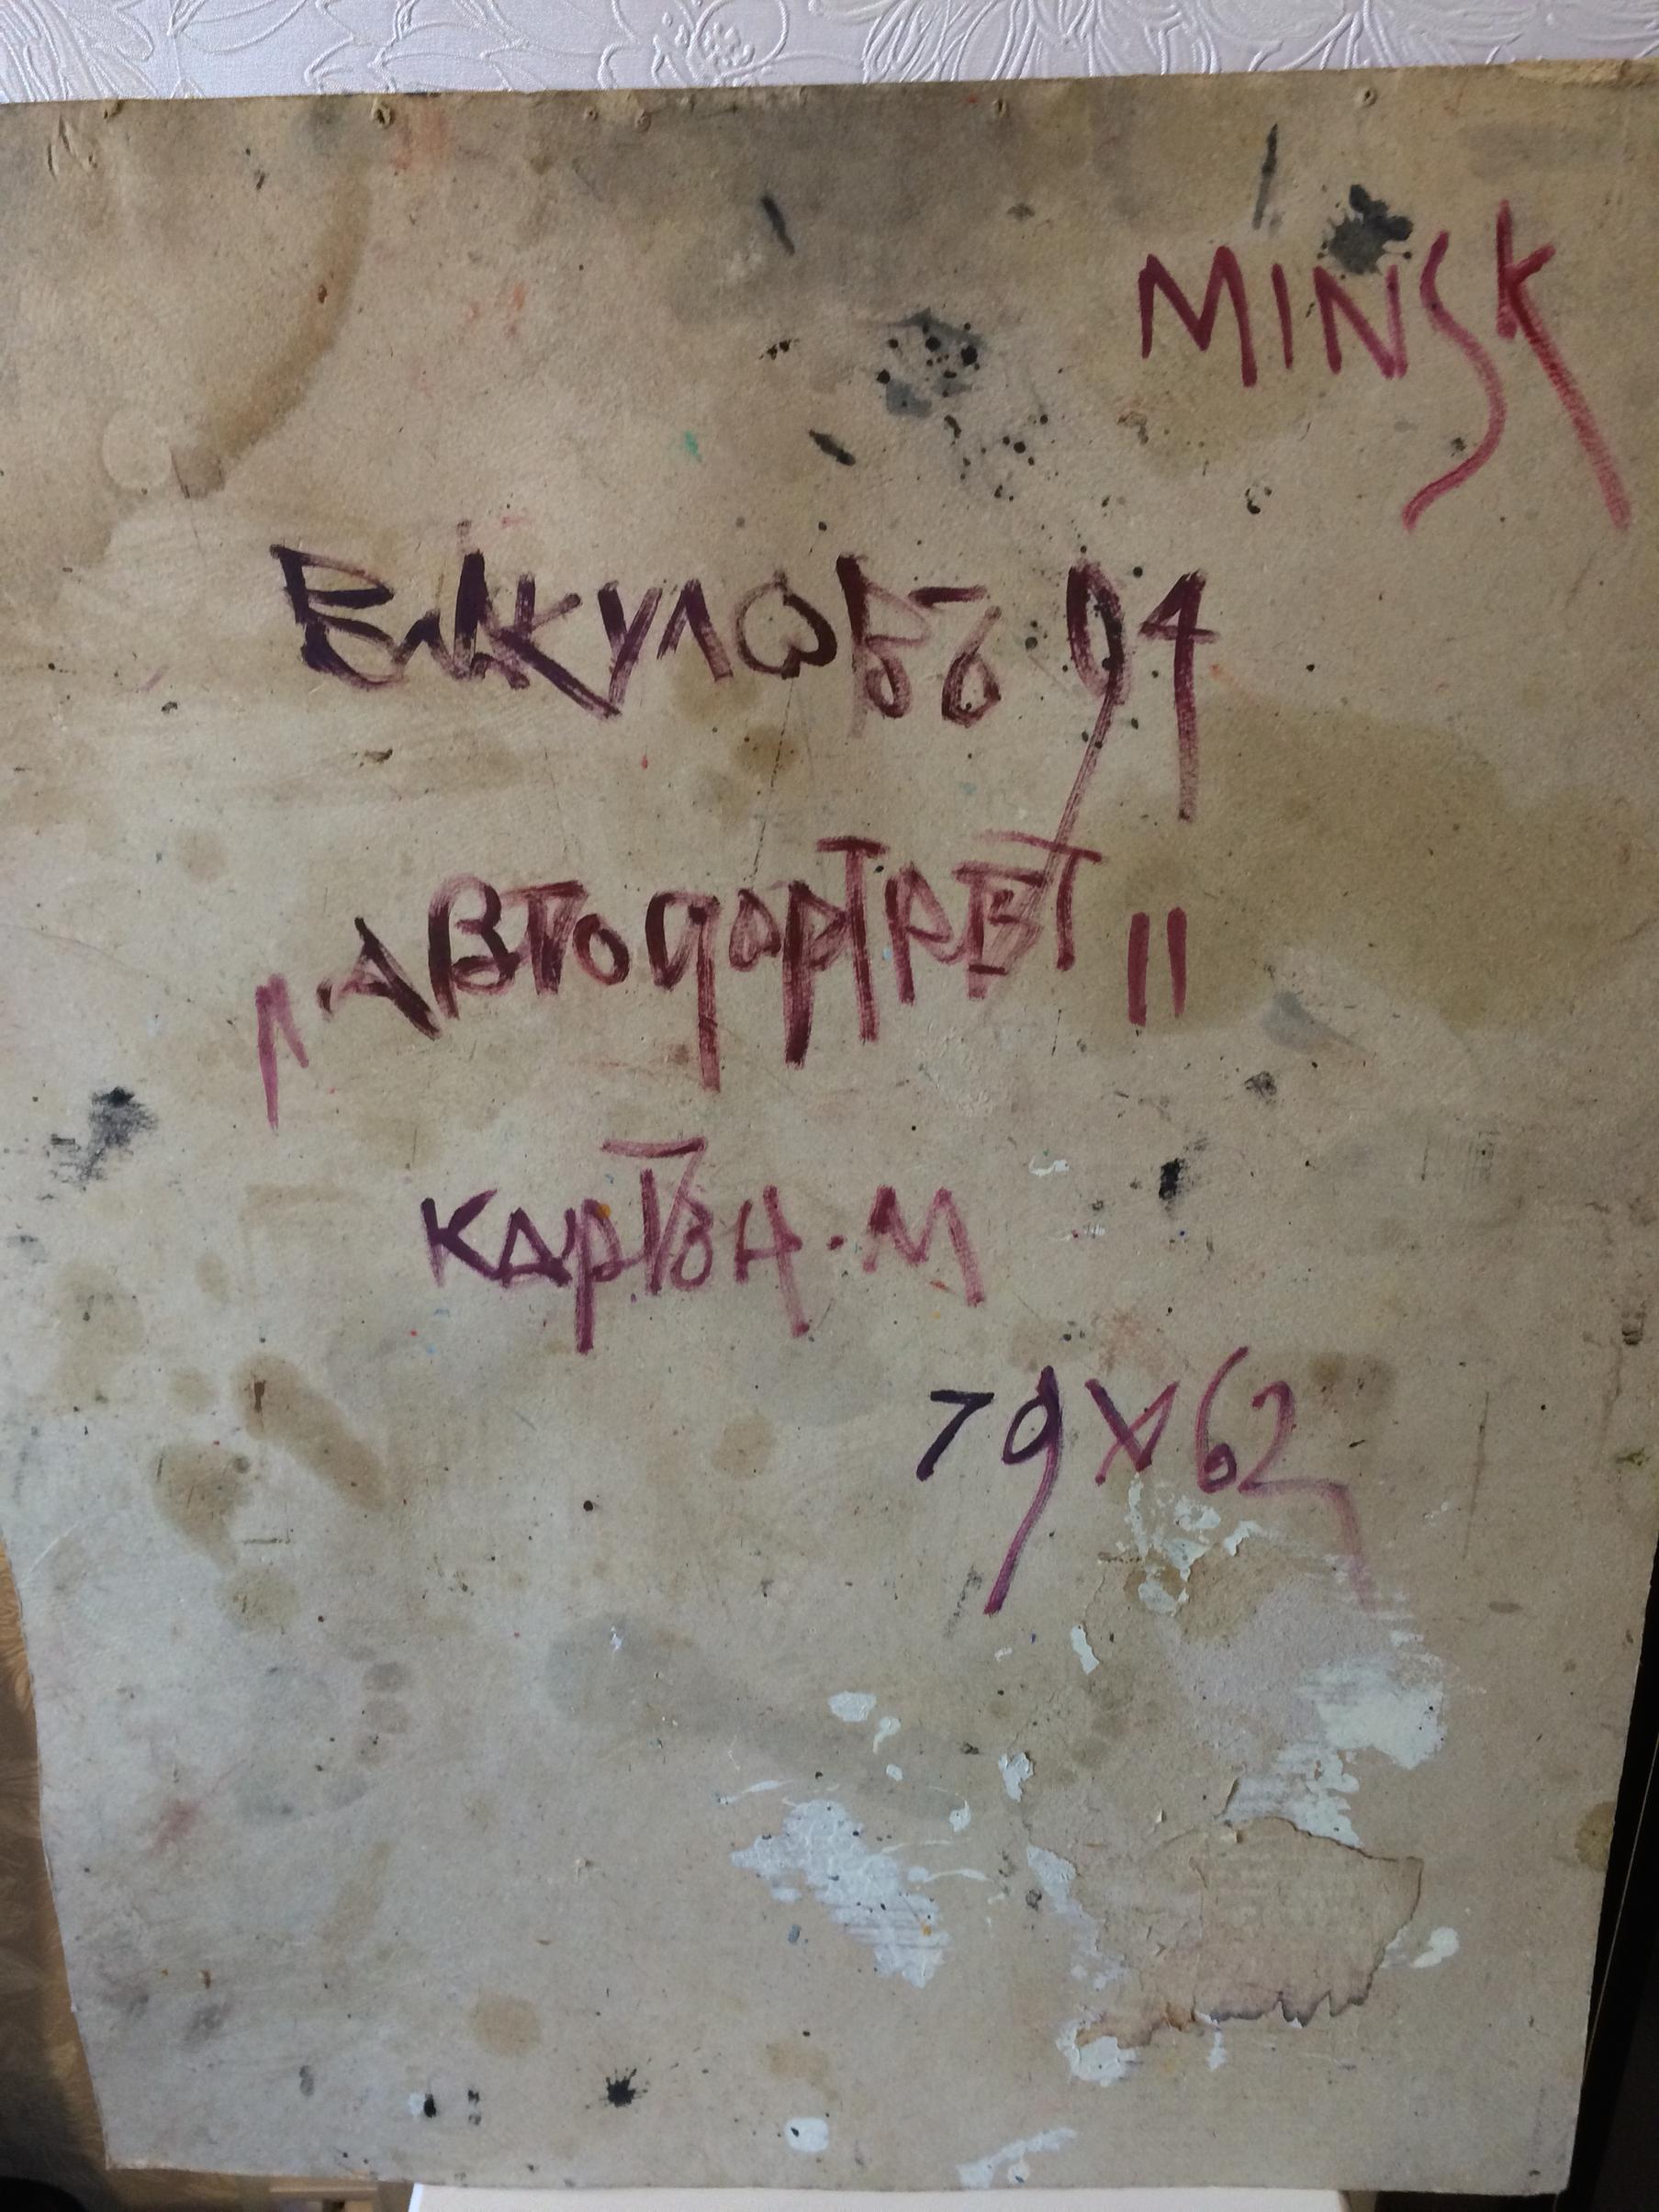 MINSK
ВИКУЛОВЪ 94
„АВТОПОРТРЕТ"
КАРТОН. М
79х62